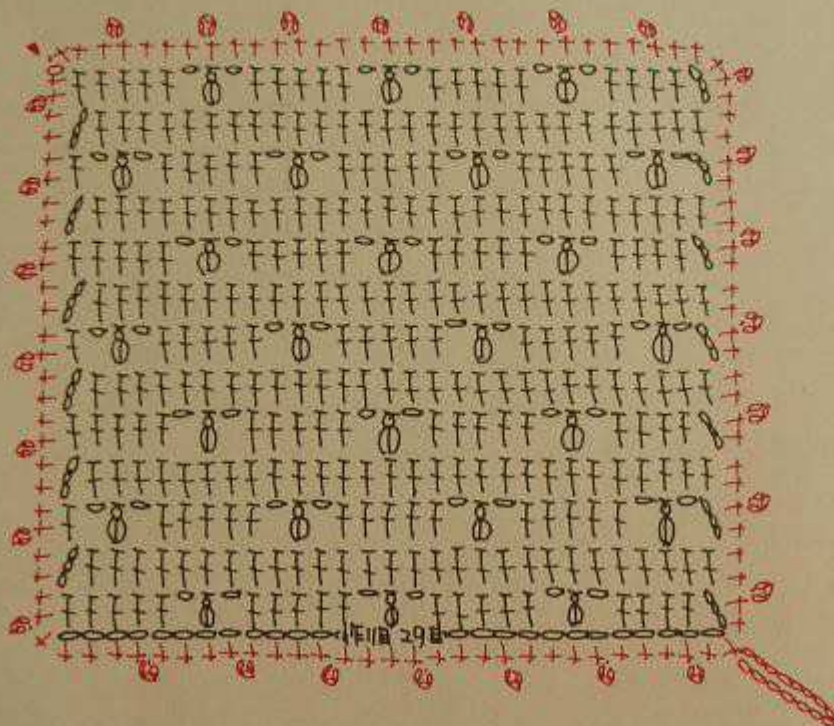 作り目 29目